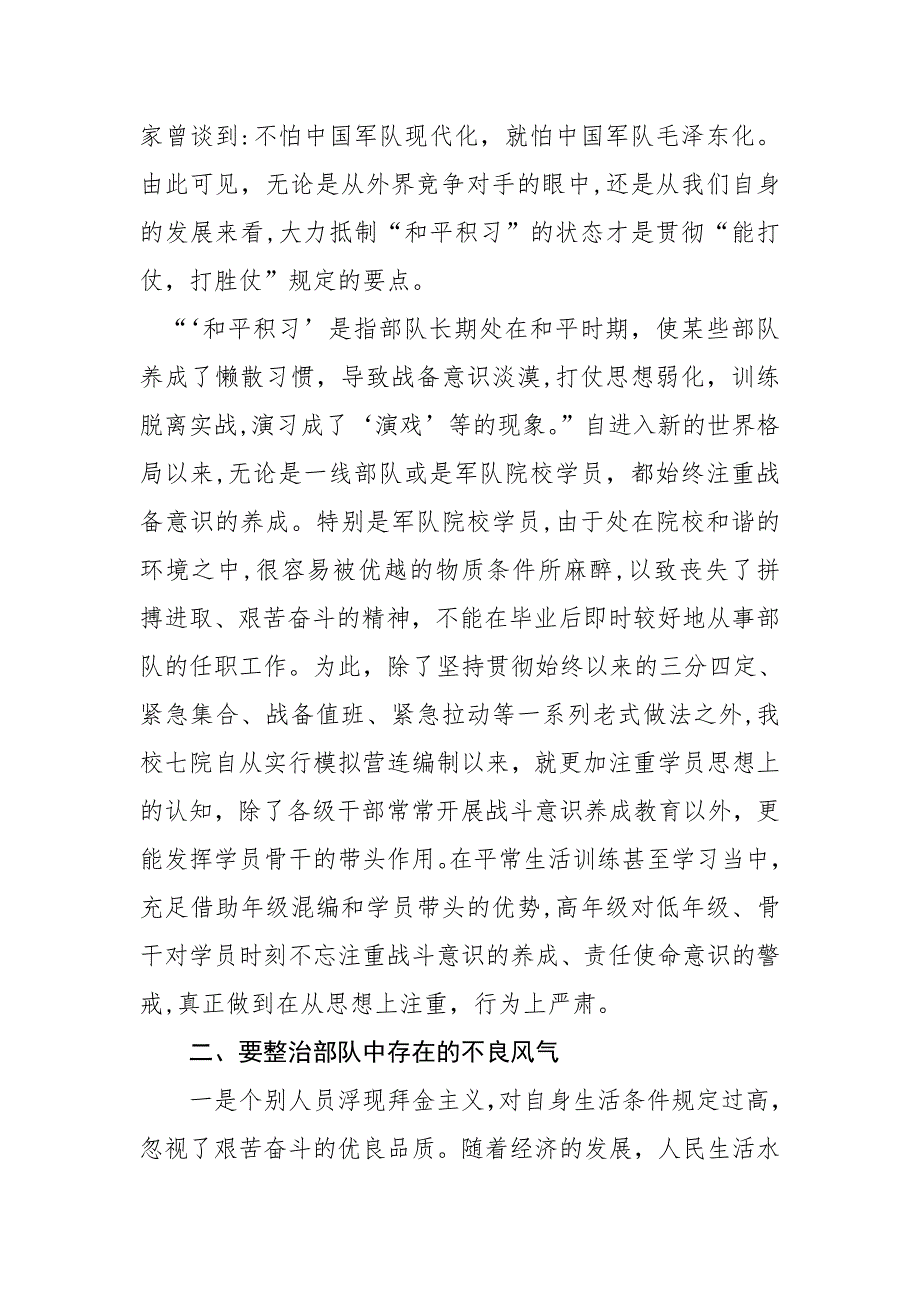 家曾谈到:不怕中国军队现代化，就怕中国军队毛泽东化。
由此可见，无论是从外界竞争对手的眼中,还是从我们自身
的发展来看,大力抵制“和平积习”的状态才是贯彻“能打
仗，打胜仗”规定的要点。
“‘和平积习’是指部队长期处在和平时期，使某些部队
养成了懒散习惯，导致战备意识淡漠,打仗思想弱化，训练
脱离实战,演习成了‘演戏’等的现象。”自进入新的世界格
局以来,无论是一线部队或是军队院校学员，都始终注重战
备意识的养成。特别是军队院校学员,由于处在院校和谐的
环境之中,很容易被优越的物质条件所麻醉,以致丧失了拼
搏进取、艰苦奋斗的精神，不能在毕业后即时较好地从事部
队的任职工作。为此，除了坚持贯彻始终以来的三分四定、
紧急集合、战备值班、紧急拉动等一系列老式做法之外,我
校七院自从实行模拟营连编制以来，就更加注重学员思想上
的认知，除了各级干部常常开展战斗意识养成教育以外，更
能发挥学员骨干的带头作用。在平常生活训练甚至学习当中，
充足借助年级混编和学员带头的优势,高年级对低年级、骨
干对学员时刻不忘注重战斗意识的养成、责任使命意识的警
戒,真正做到在从思想上注重，行为上严肃。
二、要整治部队中存在的不良风气
一是个别人员浮现拜金主义,对自身生活条件规定过高，
忽视了艰苦奋斗的优良品质。随着经济的发展，人民生活水